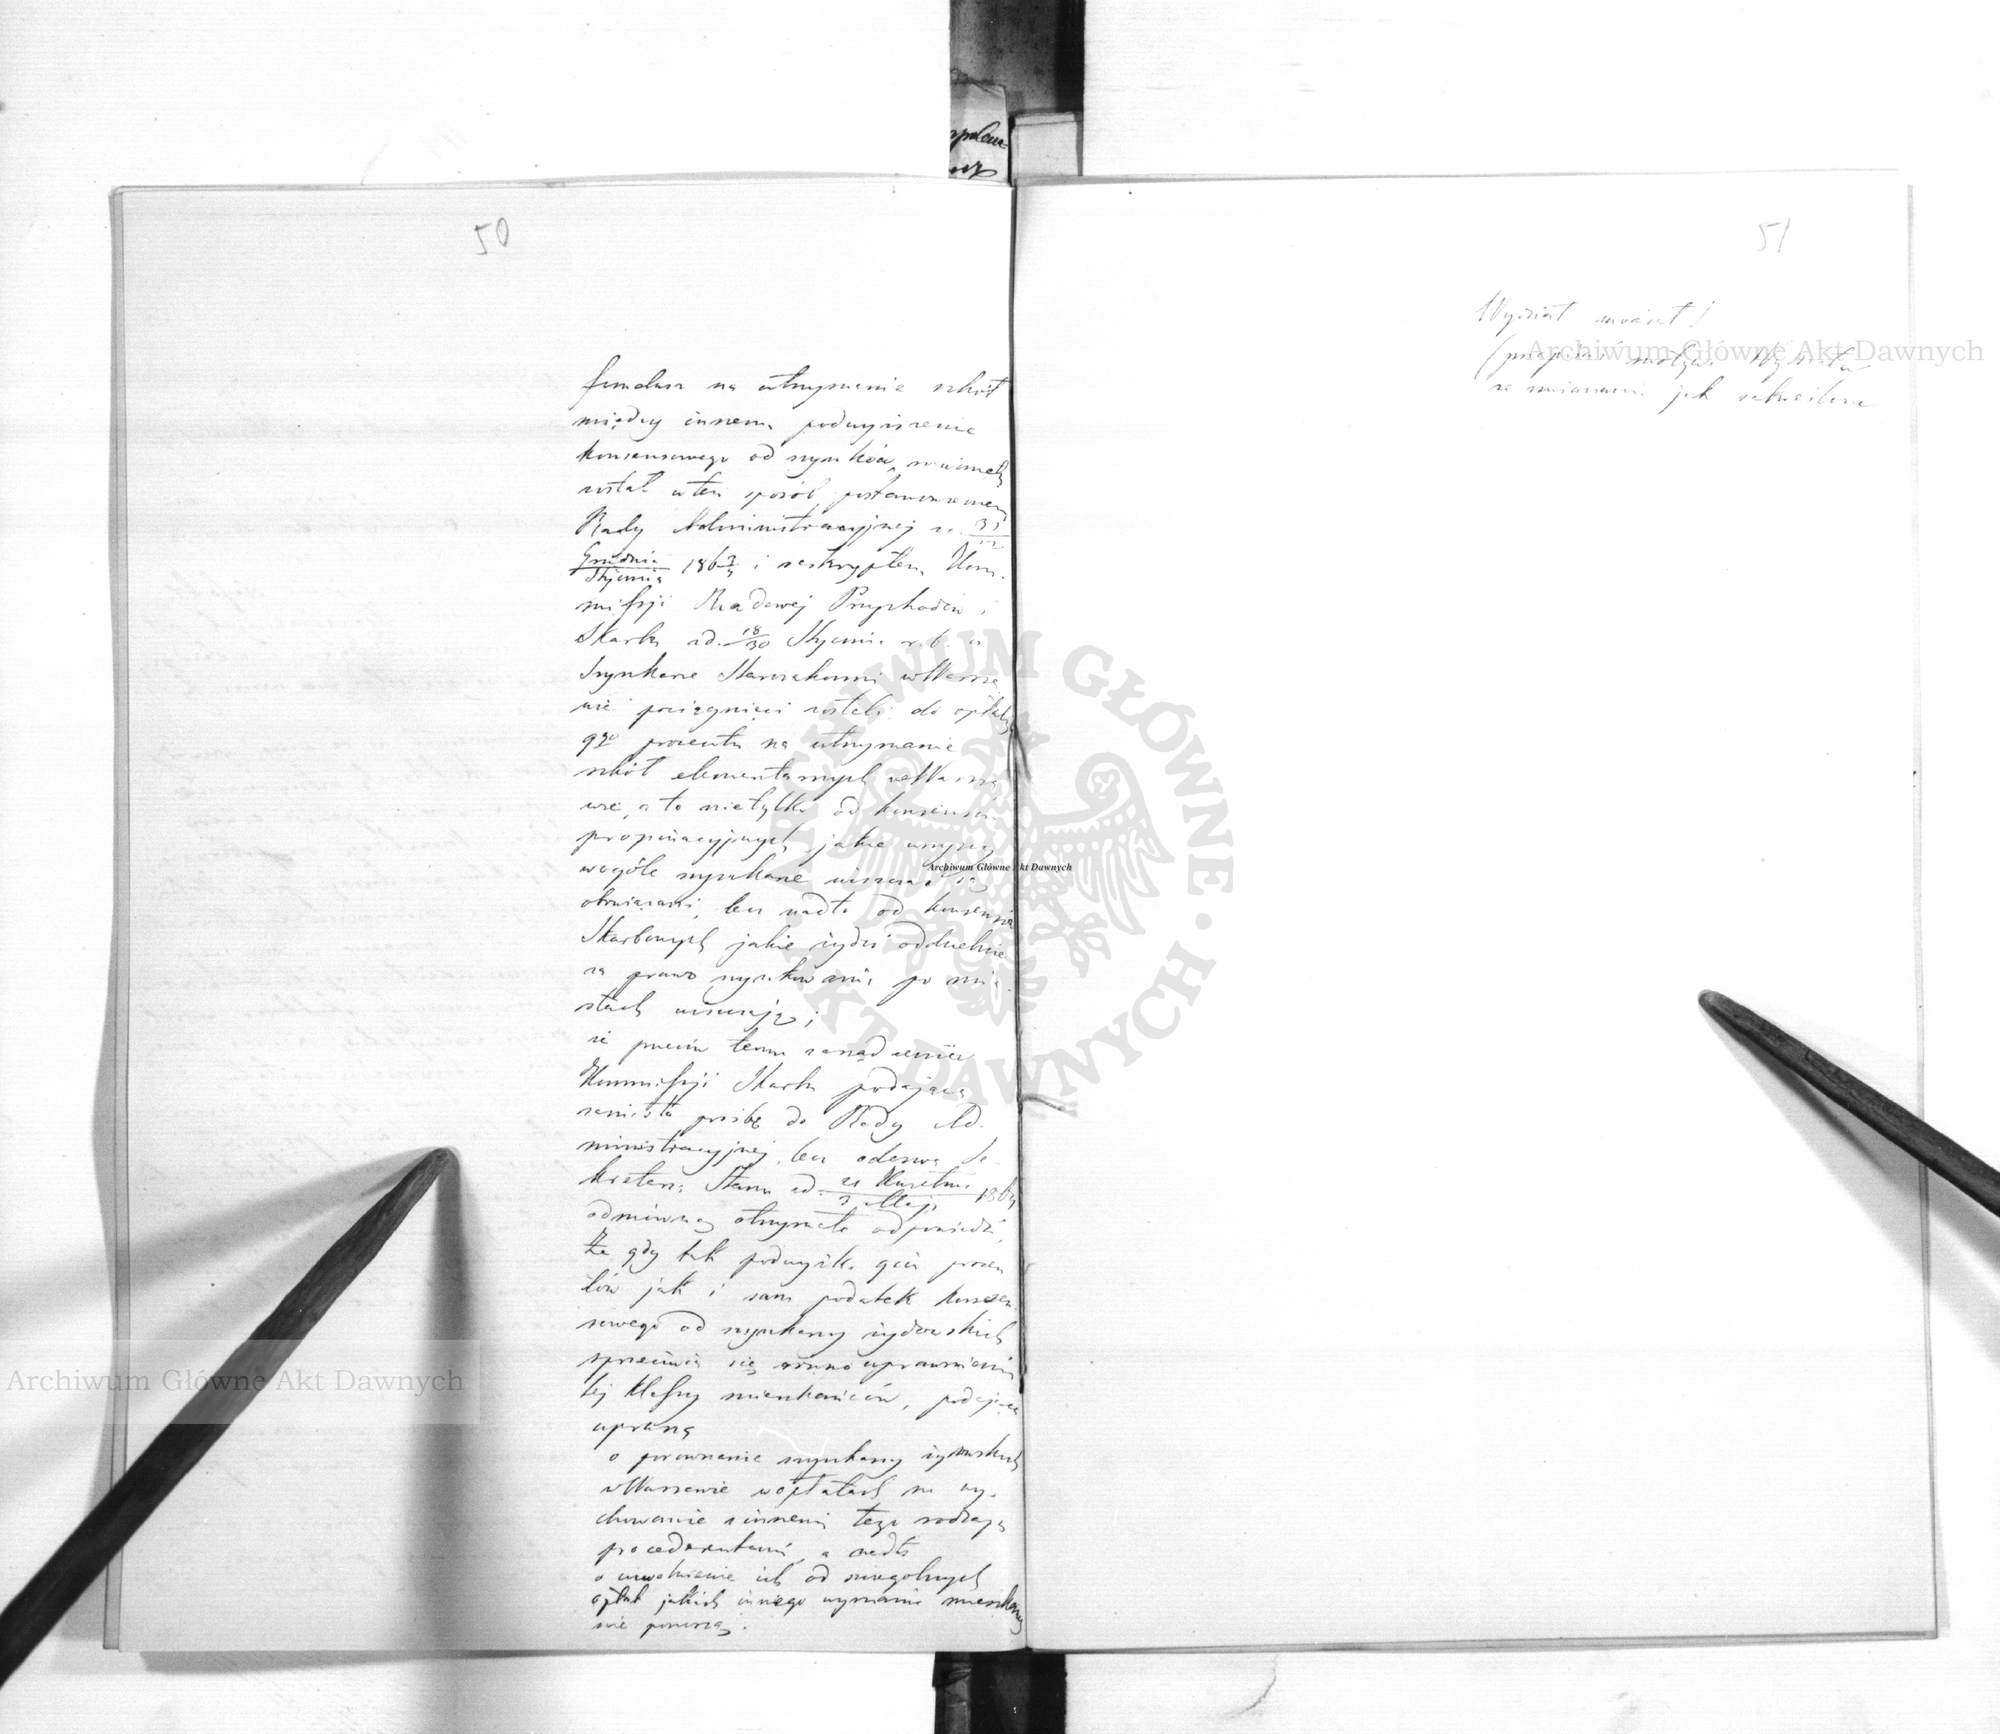 50
fundusz na utrzymanie szkół
między innemi podwyższenie
konsensowego od szynków,
został w ten sposób postanowieniem
Rady Administracyjnej z d. 31
Grudnia
Stycznia 186 i reskryptem Kom-
missyi Rządowej Przychodów i
Skarbu z d. 18/30 Stycznia r. b.
Szynkarze Starozakonni w Warsza
wie pociągnięci zostali do opłaty
9go procentu na utrzymanie
szkół elementarnych w Warsza
wie, a to nietylko od konsensów
propinacyjnych jakie wszyscy
wogóle szynkarze uiszczać są
obowiązani, lecz nadto od konsensów
Skarbowych jakie żydzi oddzielnie
za prawo szynkowania po mia
stach uiszczają;
że przeciw temu zarządzeniu
Kommissyi Skarbu podająca
zaniosła prośbę do Rady Ad-
ministracyjnej, lecz odezwą Se-
kretarza Stanu z d. 21 Kwietnia
3 Maja 1864
odmówną otrzymała odpowiedź,
Że gdy tak podwyżka procen
tów jak i sam podatek konsen-
sowego od szynkarzy żydowskich
sprzeciwia się równouprawnieniu
tej klassy mieszkańców, podająca
uprasza
o porównanie szynkarzy żydowskich
w Warszawie w opłatach na wy-
chowanie z innemi tego rodzaju
procederentami, a nadto
o uwolnienie ich od szczególnych
opłat jakich innego wyznania mieszkańcy
nie ponoszą.
51
Wydział uważał!
(przepisać motywa Wydziału
ze zmianami jak zakreślone
Archiwum Główne Akt Dawnych
Archiwum Główne Akt Dawnych
Archiwum Główne Akt Dawnych
ARCHIWUM GŁÓWNE · AKT DAWNYCH ·